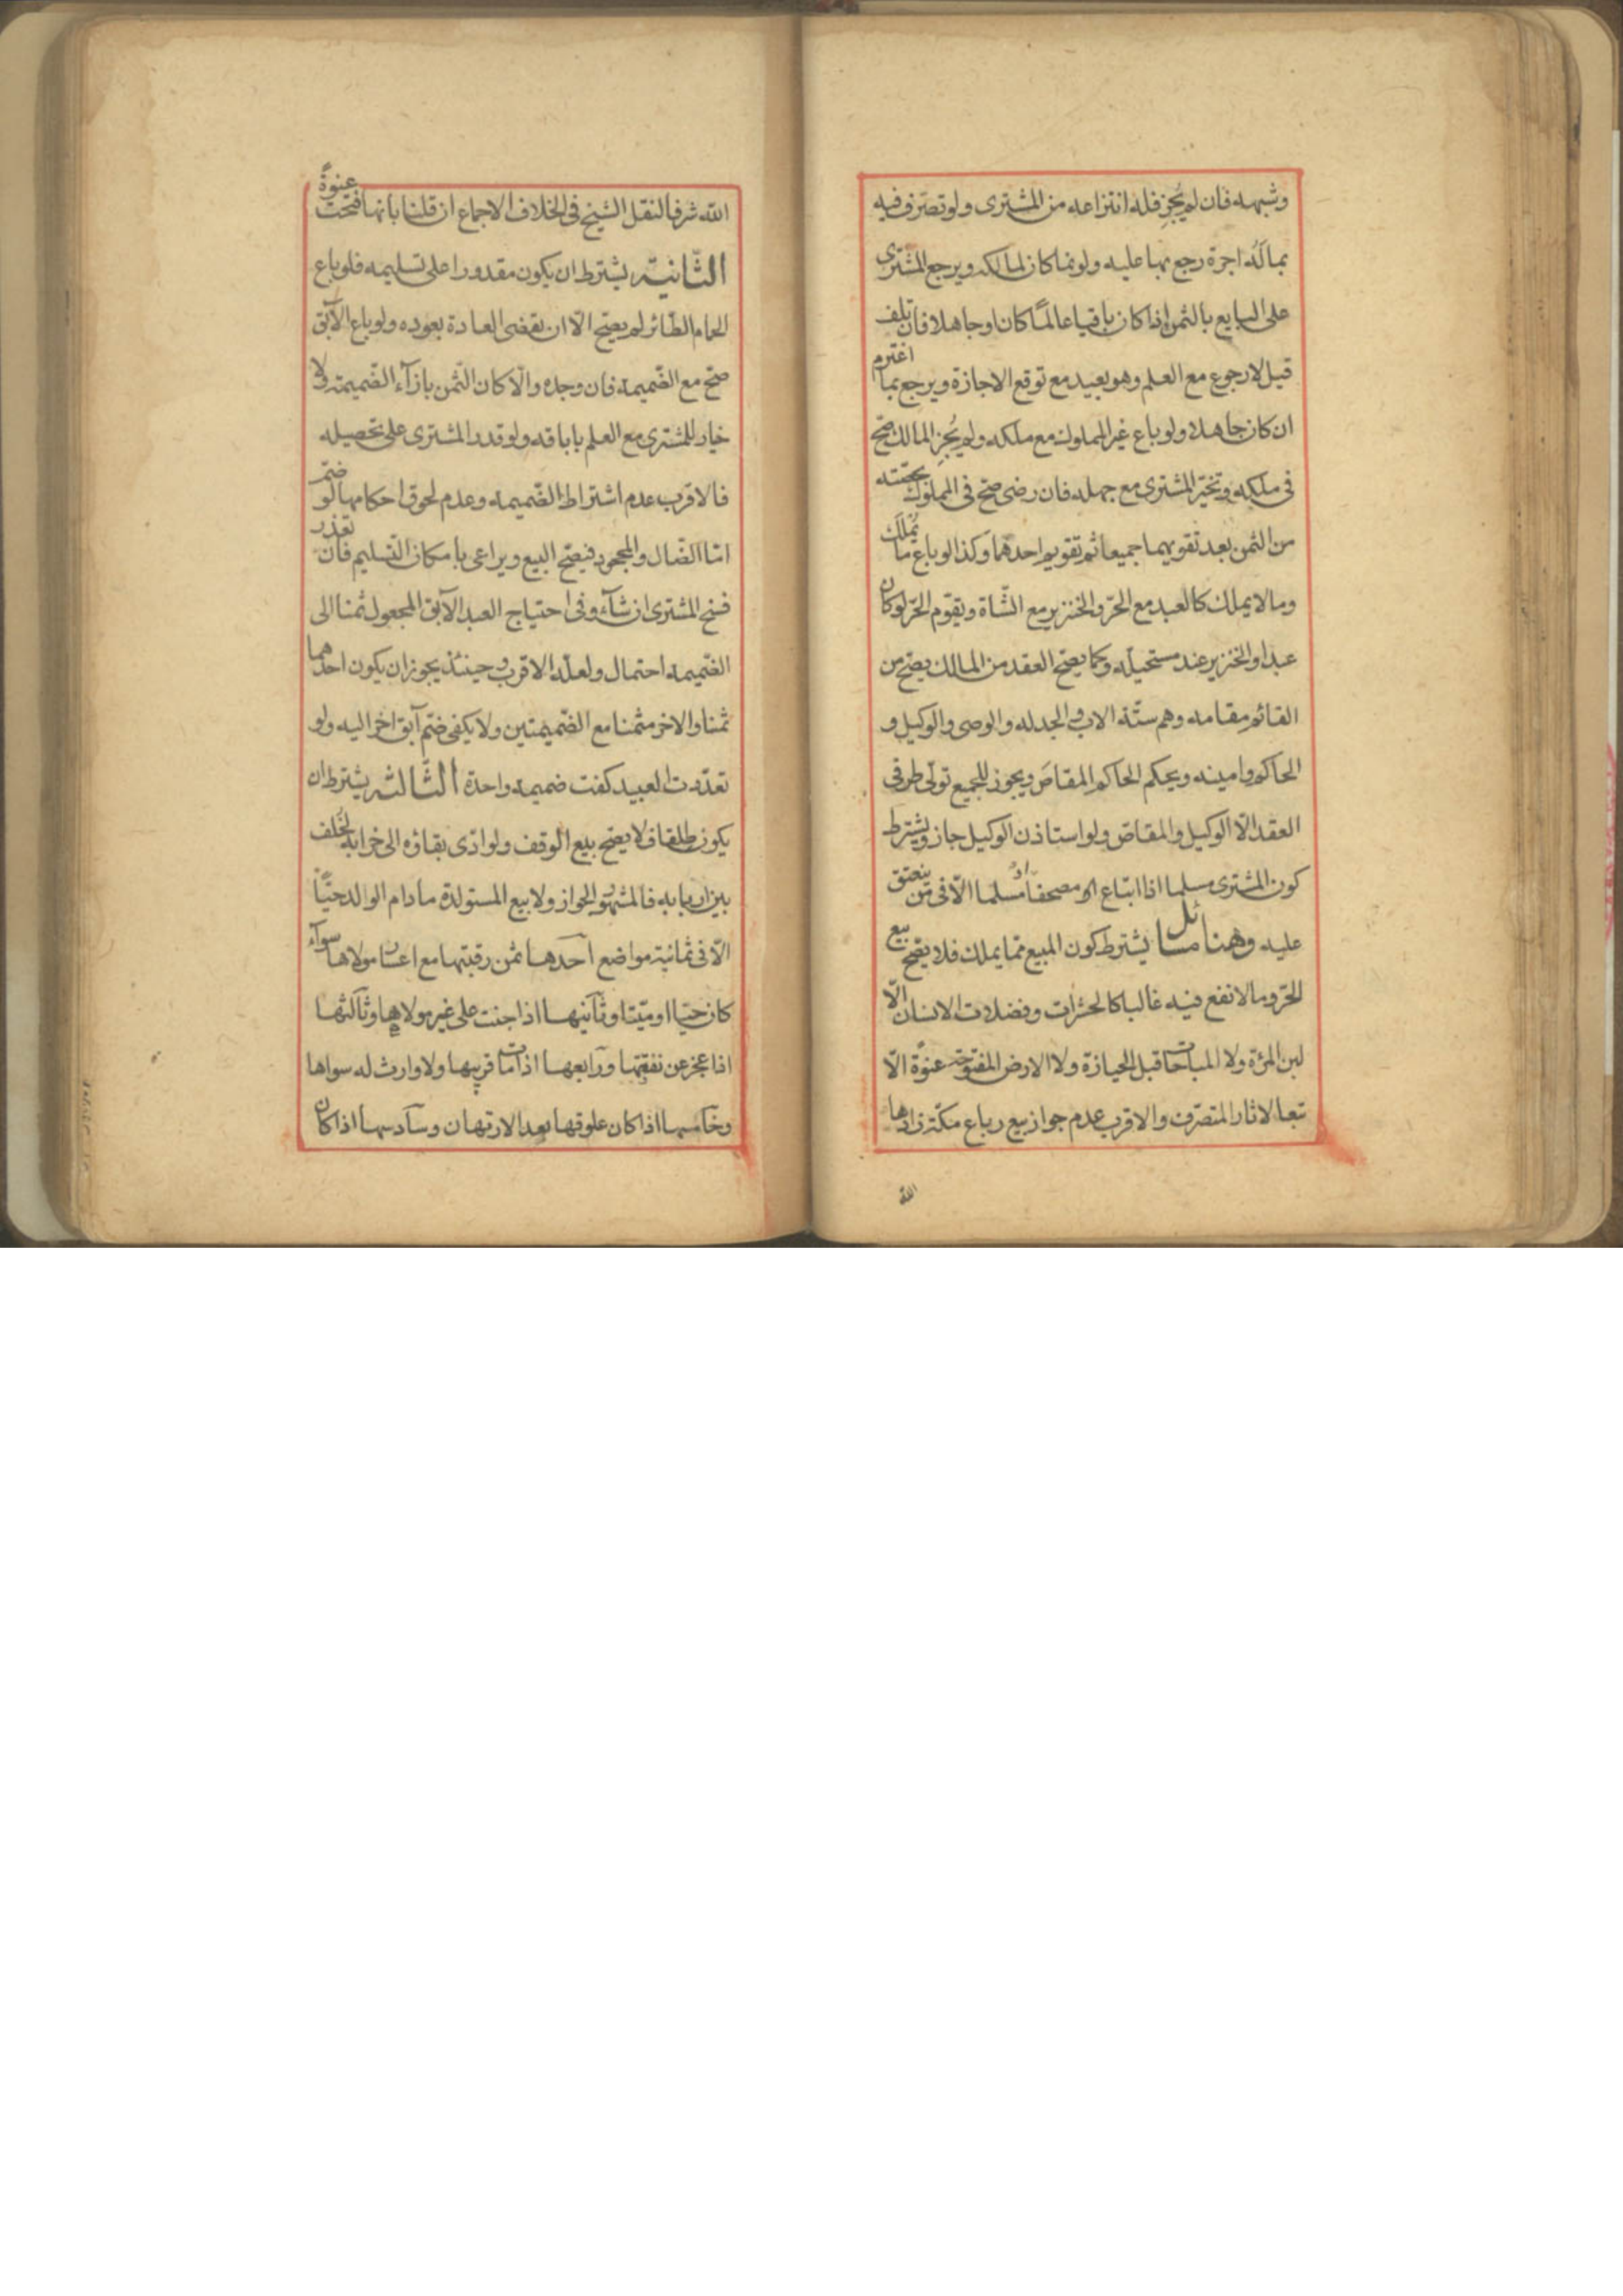 وشبهه فان لم يُجِز فله انتزاعه من المشترى ولو تصرّف فيه
بما لَه اجرة رجع بها عليه ولو نما كان لمالكه ويرجع المشترى
على البايع بالثمن اذا كان باقيا عالمًا كان او جاهلا فان تلف
قيل لا رجوع مع العلم وهو بعيد مع توقع الاجازة ويرجع بما اغترم
ان كان جاهلا ولو باع غير المملوك مع ملكه ولم يُجِزِ المالك صحّ
فى ملكه وتخيّر المشترى مع جهله فان رضى صحّ فى المملوك بحصّته
من الثمن بعد تقويمهما جميعا ثم تقويم احدهما وكذا لو باع ما يُملَك
وما لا يملك كالعبد مع الحرّ والخنزير مع الشّاة ويقوّم الحرّ لو كان
عبدا والخنزير عند مستحيلّه وكما يصحّ العقد من المالك يصحّ من
القائم مقامه وهم ستّة الاب والجد له والوصى والوكيل و
الحاكم وامينه وبحكم الحاكم المقاصّ ويجوز للجميع تولّى طرفى
العقد الّا الوكيل والمقاصّ ولو استاذن الوكيل جاز ويشترط
كون المشترى مسلما اذا ابتاع مصحفا او مسلما الّا فى من ينعتق
عليه وهنا مسائل يشترط كون المبيع ممّا يملك فلا يصحّ بيع
الحرّ وما لا نفع فيه غالبا كالحشرات وفضلات الانسان الّا
لبن المرءة ولا المباحات قبل الحيازة ولا الارض المفتوحة عنوة الّا
تبعا لاثار المتصرّف والاقرب عدم جواز بيع رباع مكّة زادها
الله
الله شرفا لنقل الشيخ فى الخلاف الاجماع ان قلنا بأنها فتحت عنوةً
الثّانية يشترط ان يكون مقدورا على تسليمه فلو باع
الحمام الطّائر لم يصحّ الّا ان تقضى العادة بعوده ولو باع الآبق
صحّ مع الضّميمه فان وجده والّا كان الثّمن بازآء الضّميمة ولا
خيار للمشترى مع العلم باباقه ولو قدر المشترى على تحصيله
فالاقرب عدم اشتراط الضّميمه وعدم لحوق احكامها لو ضمّ
امّا الضّال والمجحود فيصحّ البيع ويراعى بامكان التّسليم فان تعذر
فسخ المشترى ان شآء وفى احتياج العبد الآبق المجعول ثمنا الى
الضّميمه احتمال ولعلّه الاقرب وحينئذ يجوز ان يكون احدهما
ثمنا والاخر مثمنا مع الضّميمتين ولا يكفى ضمّ آبق اخر اليه ولو
تعدّدت العبيد كفت ضميمة واحدة الثّالثة يشترط ان
يكون طلقا فلا يصحّ بيع الوقف ولو ادّى بقاؤه الى خرابه لخُلف
بين اربابه فالمشهور الجواز ولا بيع المستولدة ما دام الوالد حيّاً
الّا فى ثمانية مواضع احدها ثمن رقبتها مع اعسار مولاها سوآء
كان حيّا او ميّتا وثانيها اذا جنت على غير مولاها وثالثها
اذا عجز عن نفقتها ورابعها اذا مات قريبها ولا وارث له سواها
وخامسها اذا كان علوقها بعد الارتهان وسادسها اذا كان